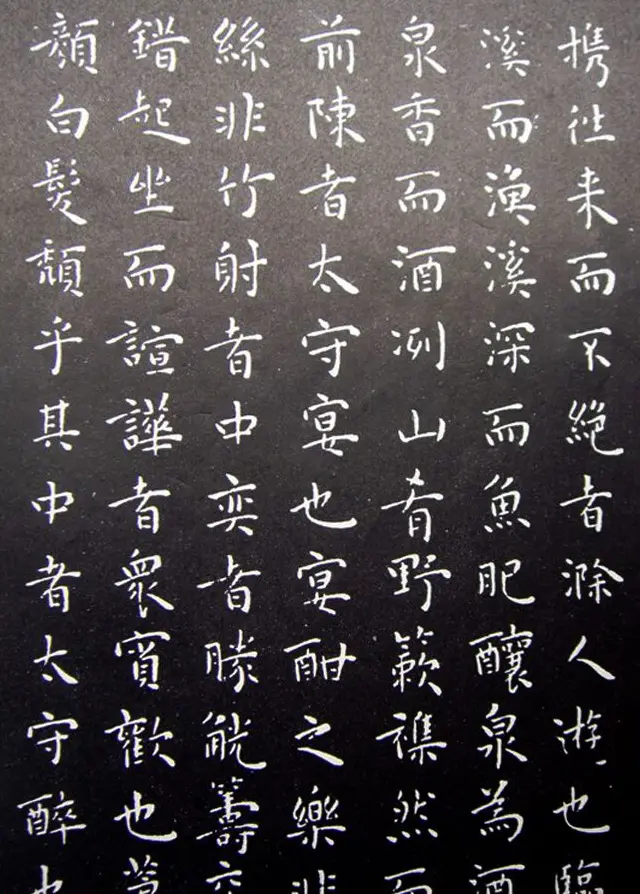 携往来而不絕者滁人游也臨
溪而漁溪深而魚肥釀泉為酒
泉香而酒冽山肴野簌襍然而
前陳者太守宴也宴酣之樂非
絲非竹射者中奕者勝觥籌交
錯起坐而諠譁者衆賓歡也蒼
顏白髮頽乎其中者太守醉也